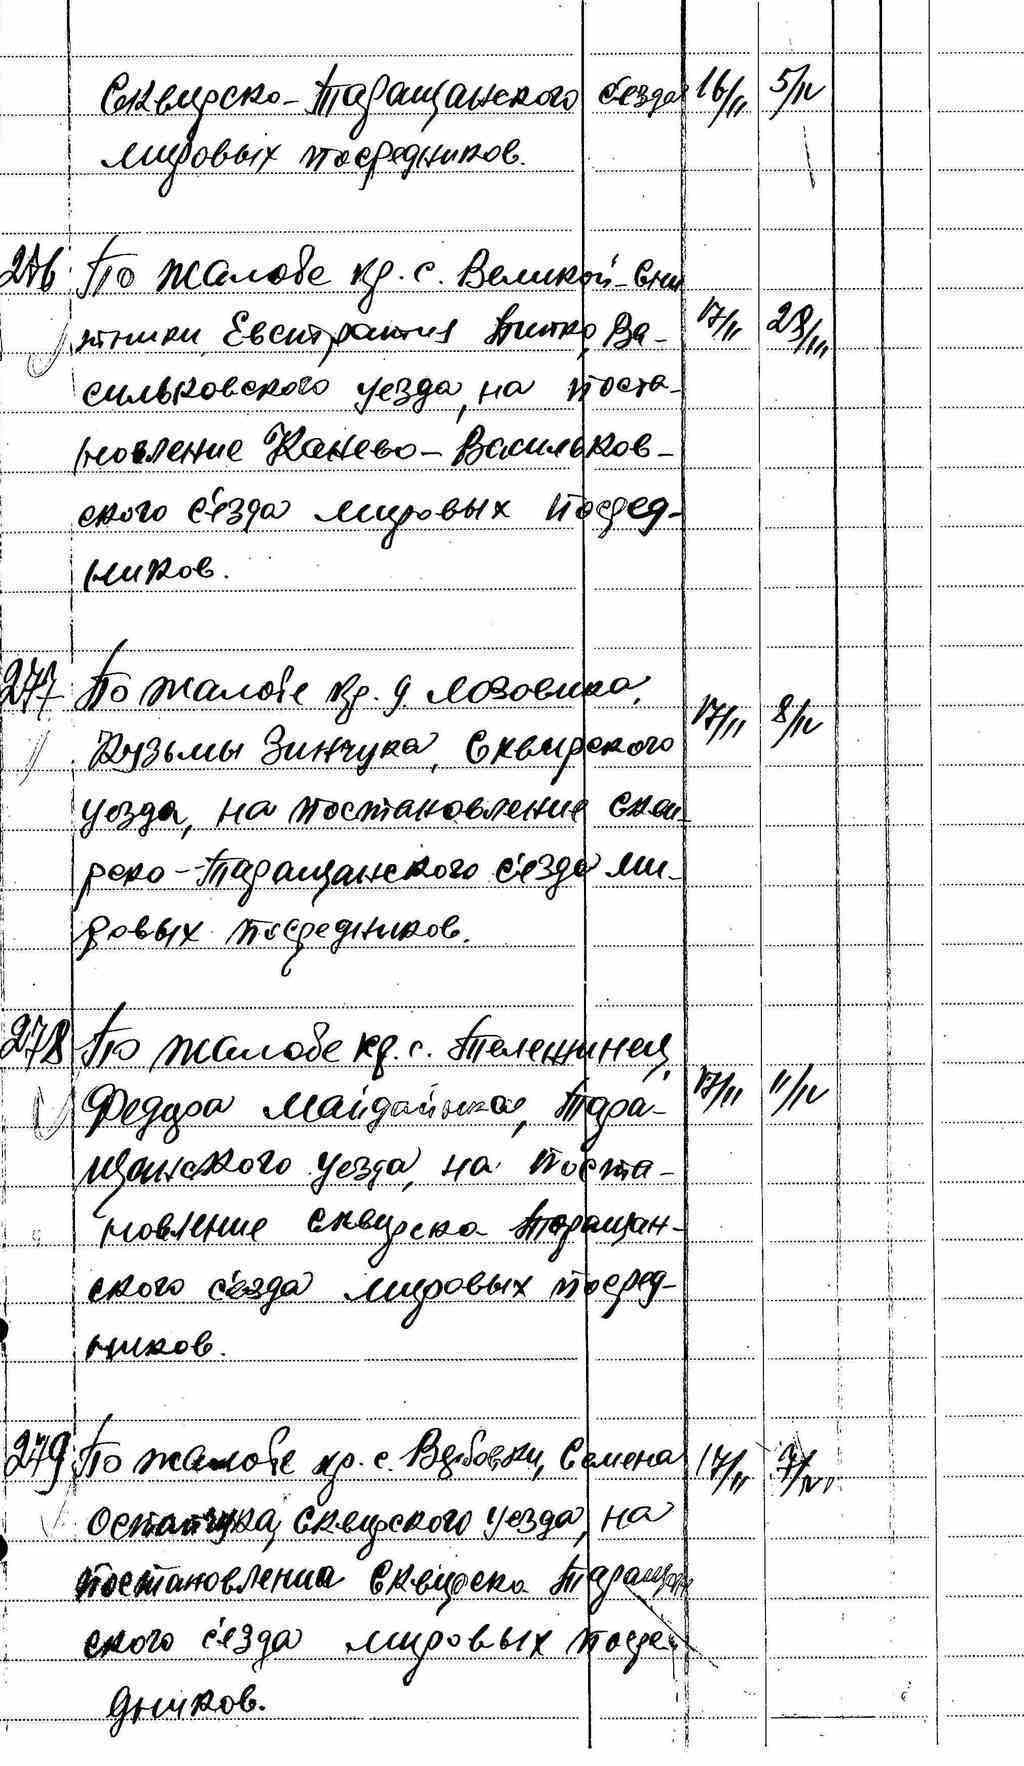 Сквирско-Таращанского съезда 16/II 5/IV
мировых посредников.
276 По жалобе кр. с. Великой-Сни
тинки, Евстратия Титко, Ва- 17/II 28/III
сильковского уезда, на поста-
новление Канево-Васильков-
ского с'езда мировых посред-
ников.
277 По жалобе кр. д. Лозовика,
Кузьмы Зинчука, Сквирского 17/II 8/IV
уезда, на постановление Скви-
рско-Таращанского с'езда ми-
ровых посредников.
278 По жалобе кр. с. Телешинец,
Федора Майданыка, Тара- 17/II 11/IV
щанского уезда, на поста-
новление Сквирско Таращан-
ского с'езда мировых посред-
ников.
279 По жалобе кр. с. Вербовки, Семена 17/II
Остапчука, Сквирского уезда, на
постановления Сквирско Таращан
ского с'езда мировых посре
дников.